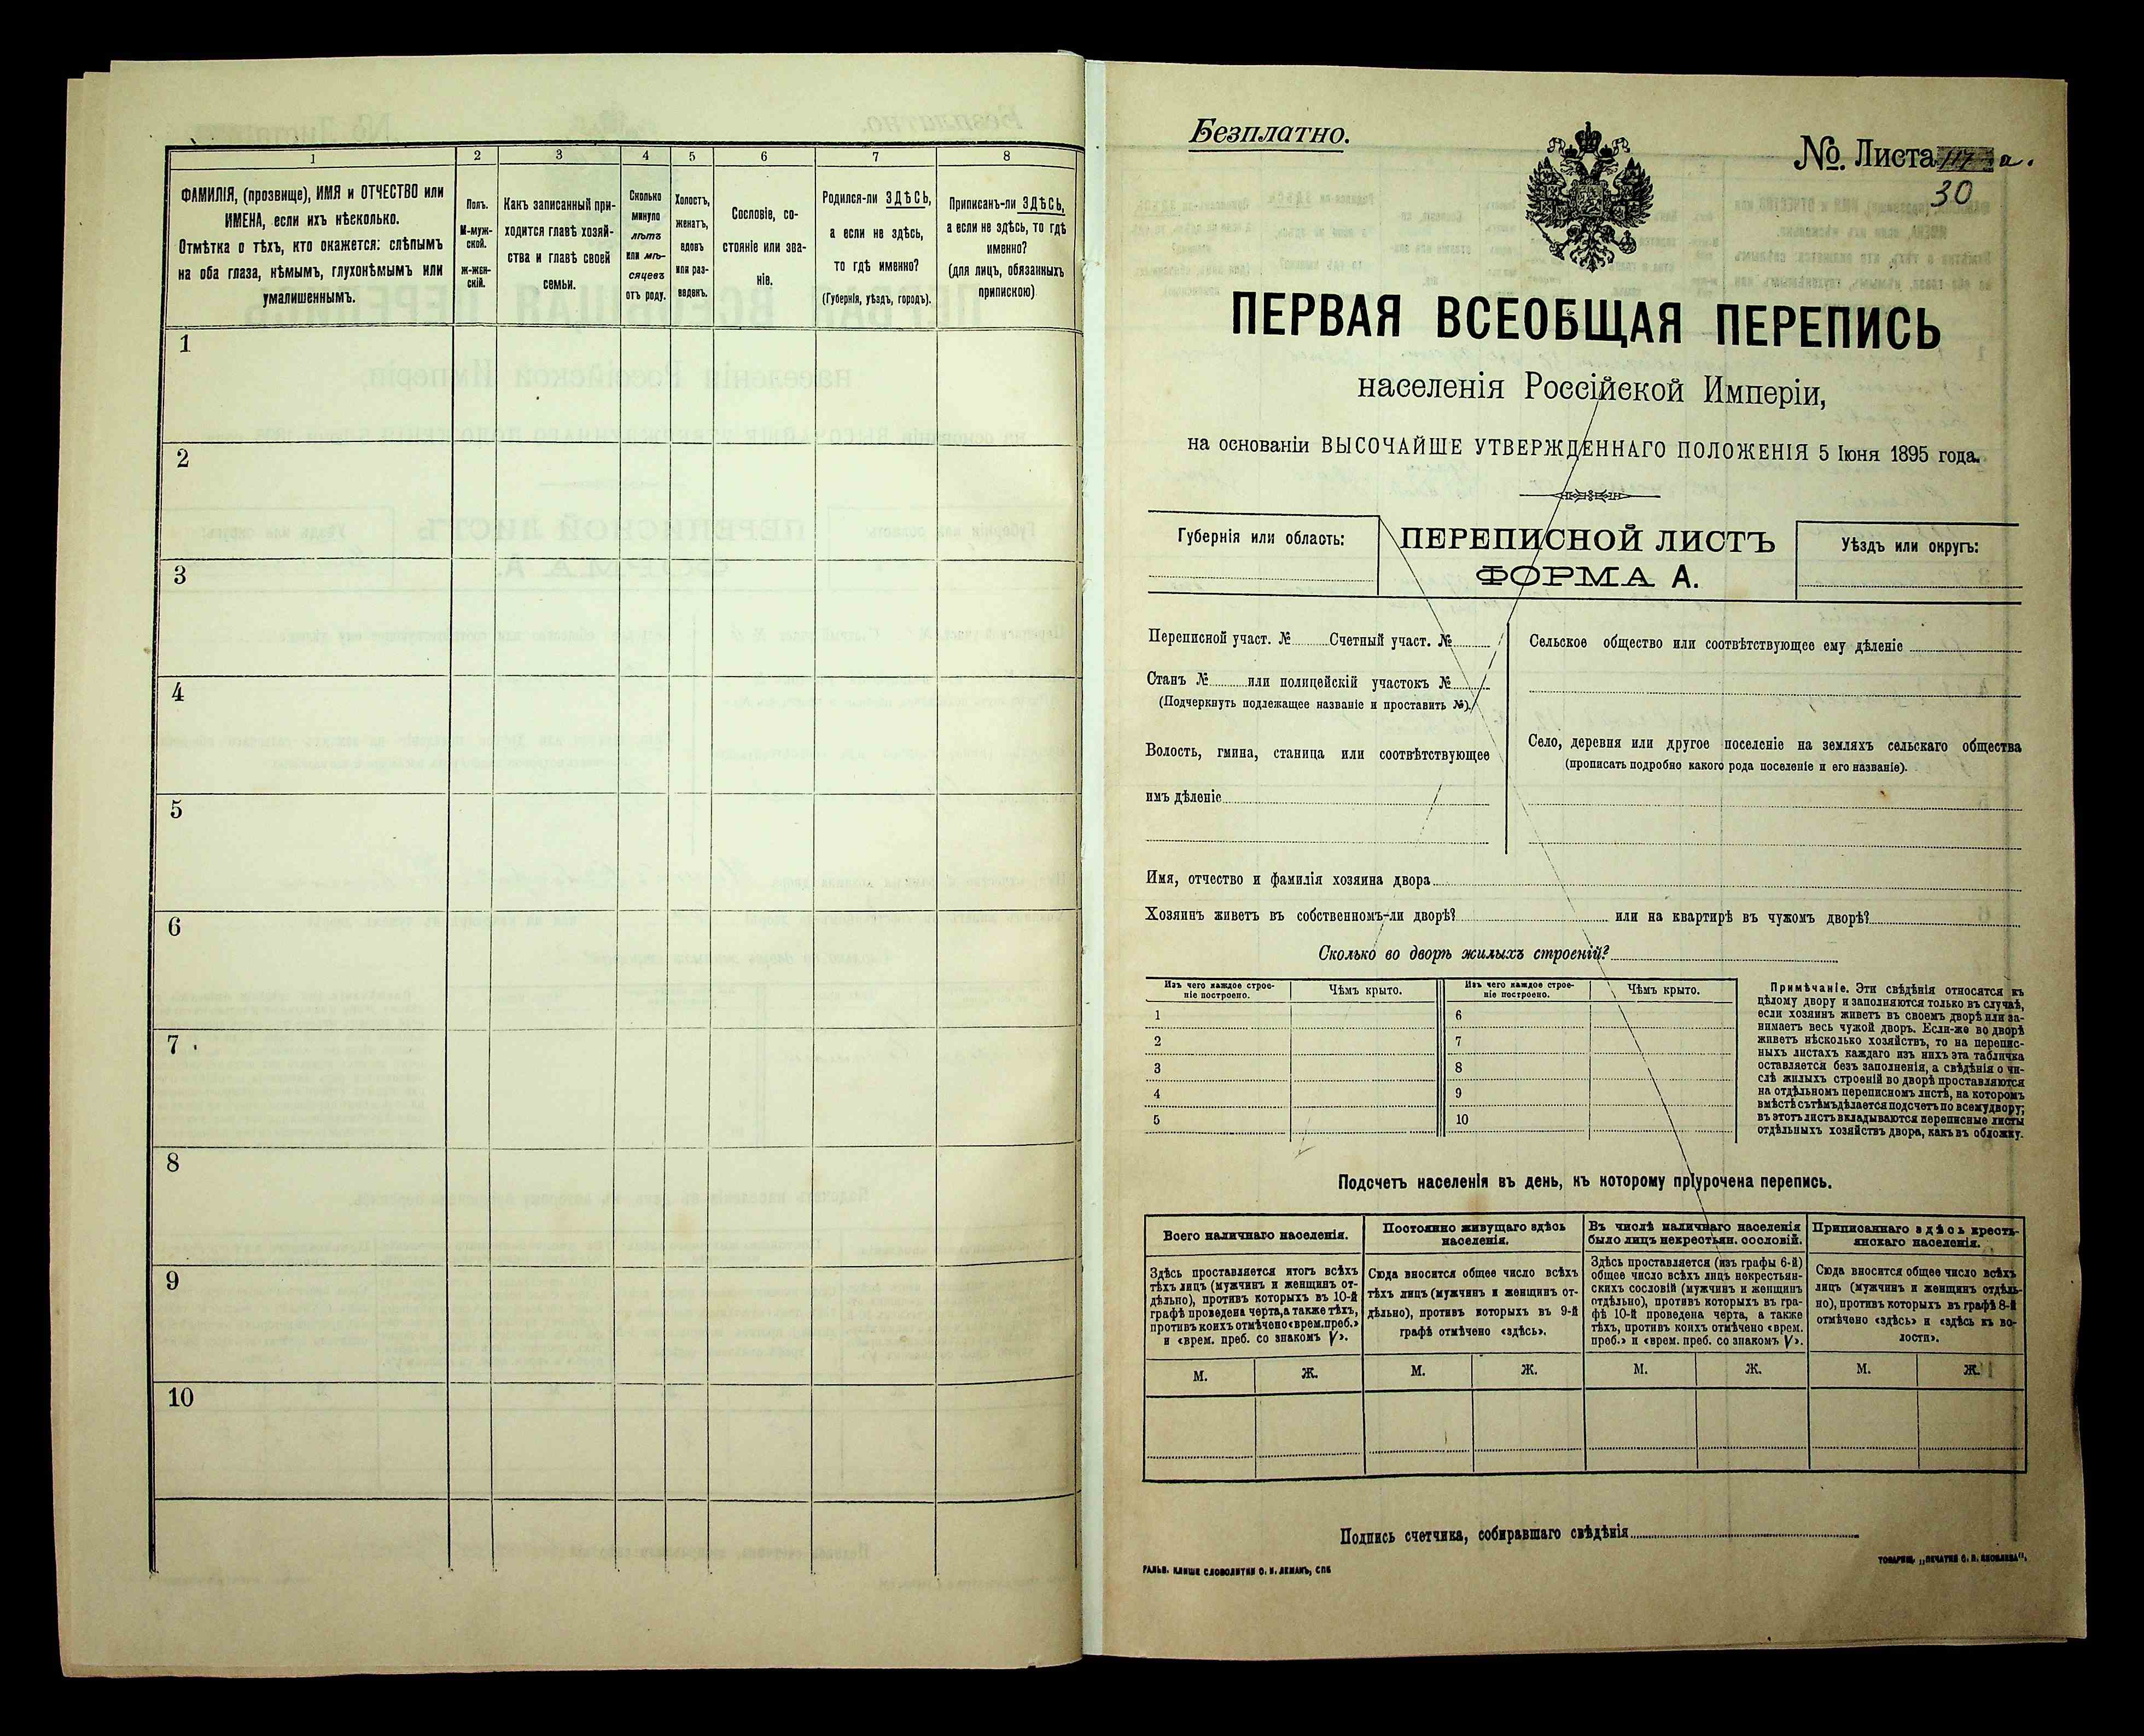 1 2 3 4 5 6 7 8
ФАМИЛІЯ, (прозвище), ИМЯ и ОТЧЕСТВО или
ИМЕНА, если ихъ нѣсколько.
Отмѣтка о тѣхъ, кто окажется: слѣпымъ
на оба глаза, нѣмымъ, глухонѣмымъ или
умалишеннымъ.
Полъ.
М-муж-
ской.
Ж-жен-
скій.
Какъ записанный при-
ходится главѣ хозяй-
ства и главѣ своей
семьи.
Сколько
минуло
лѣтъ
или мѣ-
сяцевъ
отъ роду.
Холостъ,
женатъ,
вдовъ
или раз-
веденъ.
Сословіе, со-
стояніе или зва-
ніе.
Родился-ли ЗДѢСЬ,
а если не здѣсь,
то гдѣ именно?
(Губернія, уѣздъ, городъ).
Приписанъ-ли ЗДѢСЬ,
а если не здѣсь, то гдѣ
именно?
(для лицъ, обязанныхъ
припискою)
1
2
3
4
5
6
7
8
9
10
Безплатно.
№. Листа 117 а.
30
ПЕРВАЯ ВСЕОБЩАЯ ПЕРЕПИСЬ
населенія Россійской Имперіи,
на основаніи ВЫСОЧАЙШЕ УТВЕРЖДЕННАГО ПОЛОЖЕНІЯ 5 Іюня 1895 года.
Губернія или область:
ПЕРЕПИСНОЙ ЛИСТЪ
ФОРМА А.
Уѣздъ или округъ:
Переписной участ. № Счетный участ. №
Станъ № или полицейскій участокъ №
(Подчеркнуть подлежащее названіе и проставить №).
Волость, гмина, станица или соотвѣтствующее
имъ дѣленіе
Сельское общество или соотвѣтствующее ему дѣленіе
Село, деревня или другое поселеніе на земляхъ сельскаго общества
(прописать подробно какого рода поселеніе и его названіе).
Имя, отчество и фамилія хозяина двора
Хозяинъ живетъ въ собственномъ-ли дворѣ? или на квартирѣ въ чужомъ дворѣ?
Сколько во дворѣ жилыхъ строеній?
Изъ чего каждое строе-
ніе построено.
Чѣмъ крыто.
Изъ чего каждое строе-
ніе построено.
Чѣмъ крыто.
1 6
2 7
3 8
4 9
5 10
Примѣчаніе. Эти свѣдѣнія относятся къ
цѣлому двору и заполняются только въ случаѣ,
если хозяинъ живетъ въ своемъ дворѣ или за-
нимаетъ весь чужой дворъ. Если-же во дворѣ
живетъ нѣсколько хозяйствъ, то на перепис-
ныхъ листахъ каждаго изъ нихъ эта табличка
оставляется безъ заполненія, а свѣдѣнія о чи-
слѣ жилыхъ строеній во дворѣ проставляются
на отдѣльномъ переписномъ листѣ, на которомъ
вмѣстѣ съ тѣмъ дѣлается подсчетъ по всему двору;
въ этотъ листъ вкладываются переписные листы
отдѣльныхъ хозяйствъ двора, какъ въ обложку.
Подсчетъ населенія въ день, къ которому пріурочена перепись.
Всего наличнаго населенія.
Постоянно живущаго здѣсь
населенія.
Въ числѣ наличнаго населенія
было лицъ некрестьян. сословій.
Приписаннаго здѣсь кресть-
янскаго населенія.
Здѣсь проставляется итогъ всѣхъ
тѣхъ лицъ (мужчинъ и женщинъ от-
дѣльно), противъ которыхъ въ 10-й
графѣ проведена черта, а также тѣхъ,
противъ коихъ отмѣчено «врем. преб.»
и «врем. преб. со знакомъ V».
Сюда вносится общее число всѣхъ
тѣхъ лицъ (мужчинъ и женщинъ от-
дѣльно), противъ которыхъ въ 9-й
графѣ отмѣчено «здѣсь».
Здѣсь проставляется (изъ графы 6-й)
общее число всѣхъ лицъ некрестьян-
скихъ сословій (мужчинъ и женщинъ
отдѣльно), противъ которыхъ въ гра-
фѣ 10-й проведена черта, а также
тѣхъ, противъ коихъ отмѣчено «врем.
преб.» и «врем. преб. со знакомъ V».
Сюда вносится общее число всѣхъ
лицъ (мужчинъ и женщинъ отдѣль-
но), противъ которыхъ въ графѣ 8-й
отмѣчено «здѣсь» и «здѣсь къ во-
лости».
М. Ж. М. Ж. М. Ж. М. Ж.
Подпись счетчика, собиравшаго свѣдѣнія
ГАЛЬВ. КЛИШЕ СЛОВОЛИТНИ О. И. ЛЕМАНЪ, СПБ
ТОВАРИЩ. „ПЕЧАТНЯ С. П. ЯКОВЛЕВА“.